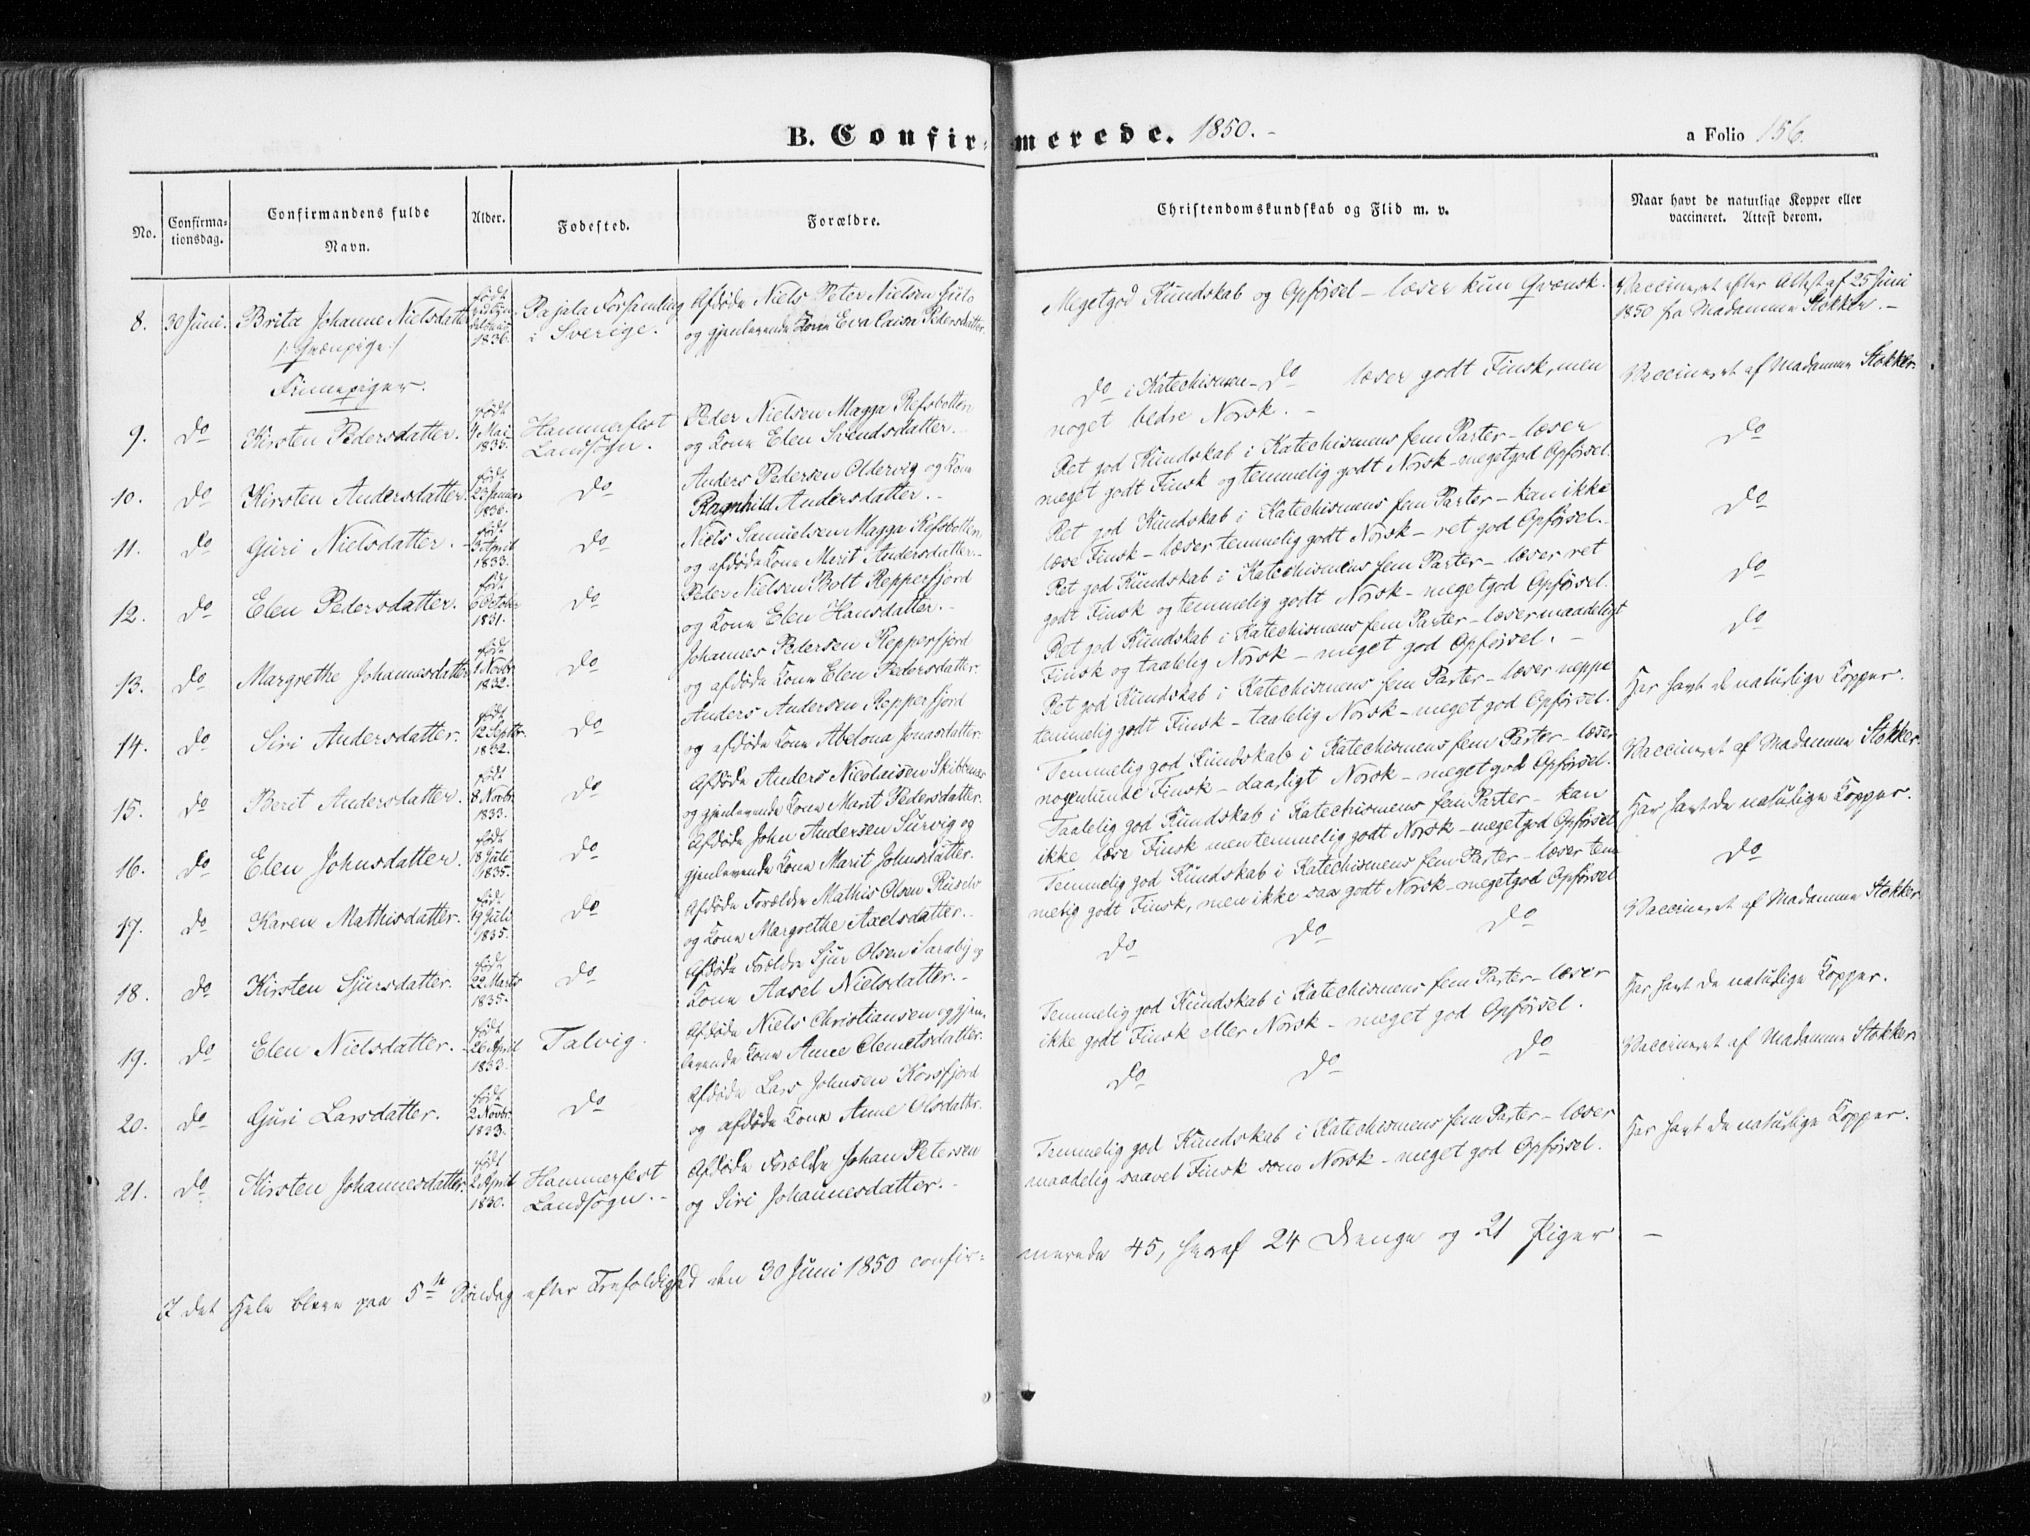 B. Confirmerede. 1850.-
a Folio 156.
No.
Confirma-
tionsdag.
Confirmandens fulde
Navn.
Alder.
Fødested.
Forældre.
Christendomskundskab og Flid m. v.
Naar havt de naturlige Kopper eller
vaccineret. Attest derom.
8. 30 Juni. Brita Johanne Nielsdatter
/: Qvænpige :/
født
1836.
Pajala Forsamling
i Sverige.
Afdøde Niels Peter Nielsen
og gjenlevende Kone Eva Caisa Pedersdatter.
Megetgod Kundskab og Opførsel - læser kun Qvænsk.
Vaccineret efter Attest af 25 Juni
1850 fra Madamme Stokker. -
Finnepiger.
9. do Kirsten Pedersdatter.
født
4 Mai
1835.
Hammerfest
Landsogn.
Peder Nielsen Magga Refsbotten
og Kone Elen Svendsdatter.
do i Katechismen - do læser godt Finsk, men
noget bedre Norsk. -
Vaccineret af Madamme Stokker.
10. do Kirsten Andersdatter.
født
23 Januar
1836.
do
Anders Pedersen Oldervig og Kone
Ragnhild Andersdatter. -
Ret god Kundskab i Katechismens fem Parter - læser
meget godt Finsk og temmelig godt Norsk - megetgod Opførsel.
do
11. do Guri Nielsdatter. -
født
3 April
1833.
do
Niels Samuelsen Magga Refsbotten
og afdøde Kone Marit Andersdatter. -
Ret god Kundskab i Katechismens fem Parter - kan ikke
læse Finsk - læser temmelig godt Norsk - ret god Opførsel. -
do
12. do Elen Pedersdatter.
født
6 October
1831.
do
Peder Nielsen Bolt Repperfjord
og Kone Elen Hansdatter. -
Ret god Kundskab i Katechismens fem Parter - læser ret
godt Finsk og temmelig godt Norsk - megetgod Opførsel.
do
13. do Margrethe Johannesdatter
født
1 Novbr.
1832.
do
Johannes Pedersen Repperfjord
og afdøde Kone Elen Pedersdatter.
Ret god Kundskab i Katechismens fem Parter - læser maadeligt
Finsk og taalelig Norsk - meget god Opførsel. -
do
14. do Siri Andersdatter.
født
12 Septbr.
1832.
do
Anders Andersen Repperfjord
og afdøde Kone Abelona Jonasdatter.
Ret god Kundskab i Katechismens fem Parter - læser neppe
temmelig godt Finsk - taalelig Norsk - meget god Opførsel.
Har havt de naturlige Kopper.
15. do Berit Andersdatter.
født
8 Novbr.
1833.
do
Afdøde Anders Nicolaisen Skibbenæs
og gjenlevende Kone Marit Pedersdatter.
Temmelig god Kundskab i Katechismens fem Parter - læser
nogenlunde Finsk - daarligt Norsk - meget god Opførsel.
Vaccineret af Madamme Stokker.
16. do Elen Johnsdatter.
født
18 Juli
1835.
do
Afdøde John Andersen Survig og
gjenlevende Kone Marit Johnsdatter.
Taalelig god Kundskab i Katechismens fem Parter - kan
ikke læse Finsk men temmelig godt Norsk - megetgod Opførsel
Har havt de naturlige Kopper.
17. do Karen Mathisdatter.
født
19 Juli
1835.
do
Afdøde Forældre Mathis Olsen
og Kone Margrethe Axelsdatter. -
Temmelig god Kundskab i Katechismens fem Parter - læser tem-
melig godt Finsk, men ikke saa godt Norsk - megetgod Opførsel
do
18. do Kirsten Sjursdatter.
født
22 Marts
1835.
do
Afdøde Forældre Sjur Olsen Saraby og
Kone Aasel Nielsdatter. -
do do do
Vaccineret af Madamme Stokker.
19. do Elen Nielsdatter. -
født
26 April
1833.
Talvig.
Afdøde Niels Christiansen og gjen-
levende Kone Anne Clemetsdatter.
Temmelig god Kundskab i Katechismens fem Parter - læser
ikke godt Finsk eller Norsk - meget god Opførsel.
Har havt de naturlige Kopper.
20. do Guri Larsdatter.
født
2 Novbr.
1833.
do
Afdøde Lars Johnsen Korsfjord
og afdøde Kone Anne Olsdatter.
do do do
Vaccineret af Madamme Stokker.
21. do Kirsten Johannesdatter.
født
2 April
1830.
Hammerfest
Landsogn. -
Afdøde Forældre Johan Petersen
og Siri Johannesdatter. -
Temmelig god Kundskab i Katechismens fem Parter - læser
maadelig saavel Finsk som Norsk - meget god Opførsel.
Har havt de naturlige Kopper.
I det Hele bleve paa 5te Søndag efter Trefoldighed den 30 Juni 1850 confir-
merede 45, heraf 24 Drenge og 21 Piger -